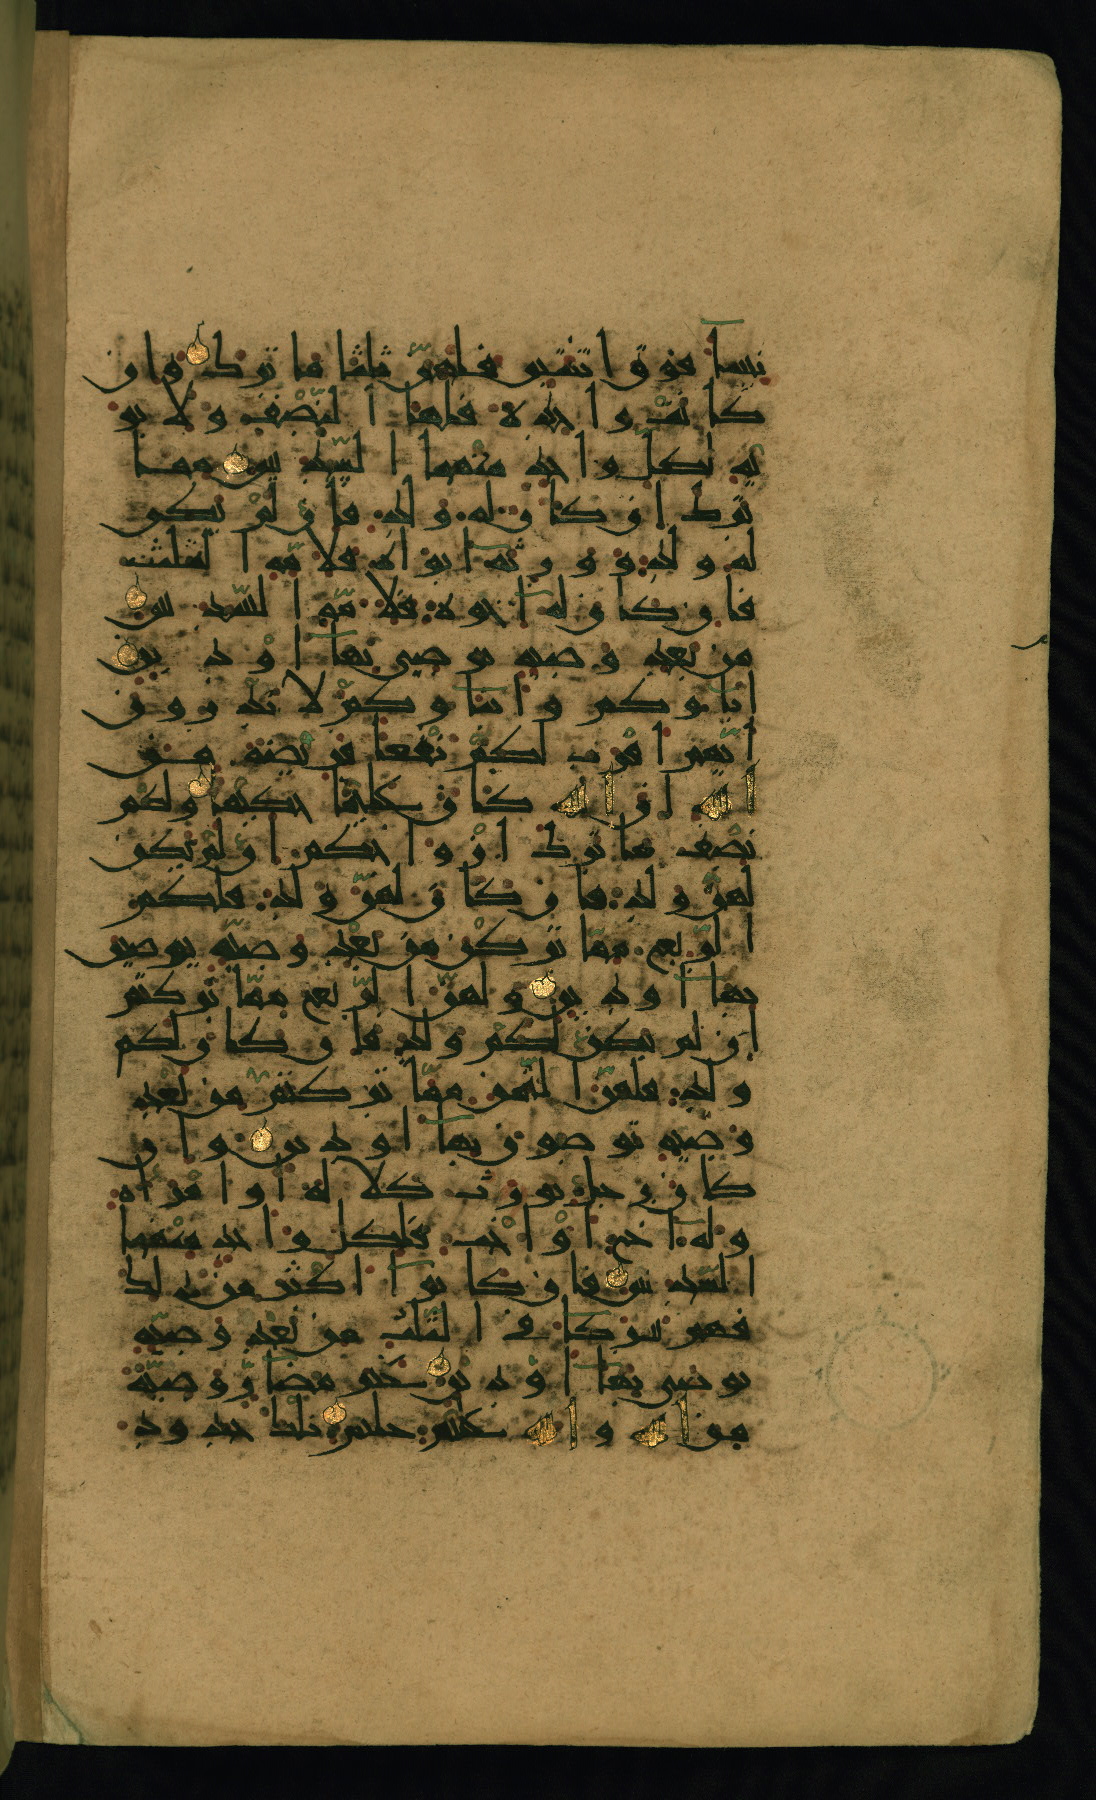 نسا فوق اثنتين فلهن ثلثا ما ترك وان
كانت واحدة فلها النصف ولابو
يه لكل واحد منهما السدس مما
ترك ان كان له ولد فان لم يكن
له ولد وورثه ابواه فلامه الثلث
فان كان له اخوة فلامه السدس
من بعد وصية يوصي بها او دين
اباوكم وابناوكم لا تدرون
ايهم اقرب لكم نفعا فريضة من
الله ان الله كان عليما حكيما ولكم
نصف ما ترك ازواجكم ان لم يكن
لهن ولد فان كان لهن ولد فلكم
الربع مما تركن من بعد وصية يوصين
بها او دين ولهن الربع مما تركتم
ان لم يكن لكم ولد فان كان لكم
ولد فلهن الثمن مما تركتم من بعد
وصية توصون بها او دين وان
كان رجل يورث كلالة او امراة
وله اخ او اخت فلكل واحد منهما
السدس فان كانوا اكثر من ذلك
فهم شركا في الثلث من بعد وصية
يوصى بها او دين غير مضار وصية
من الله والله عليم حليم تلك حدود